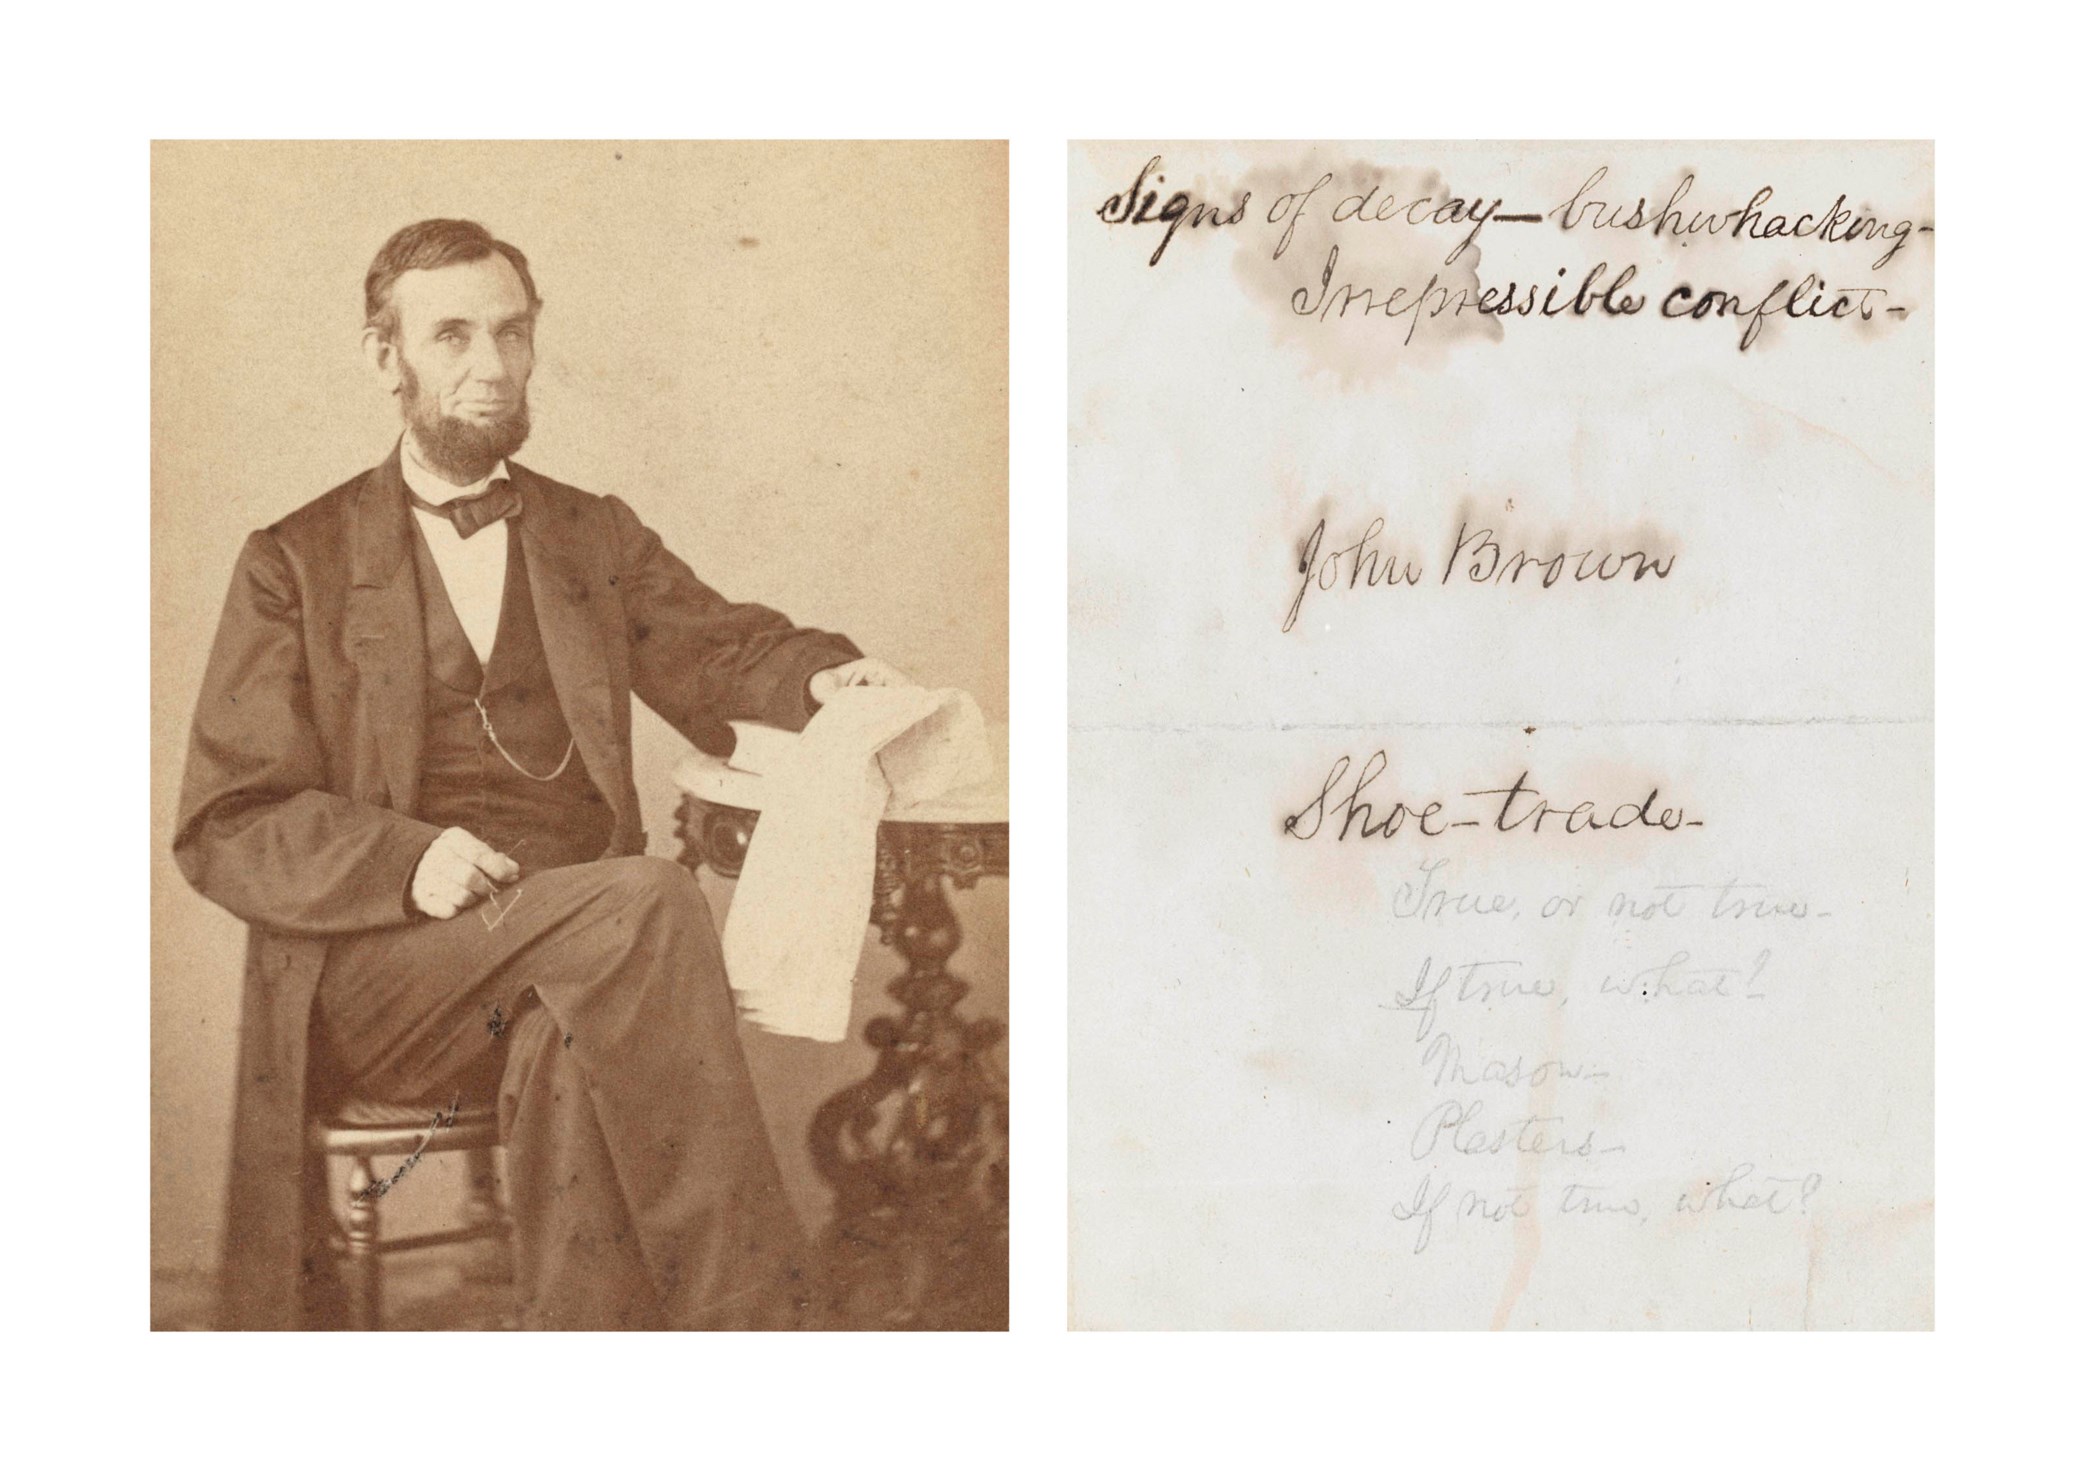 Signs of decay— bushwhacking-
Irrepressible conflict-
John Brown
Shoe-trade-
True, or not true-
If true, what?
Mason-
Plasters-
If not true, what?